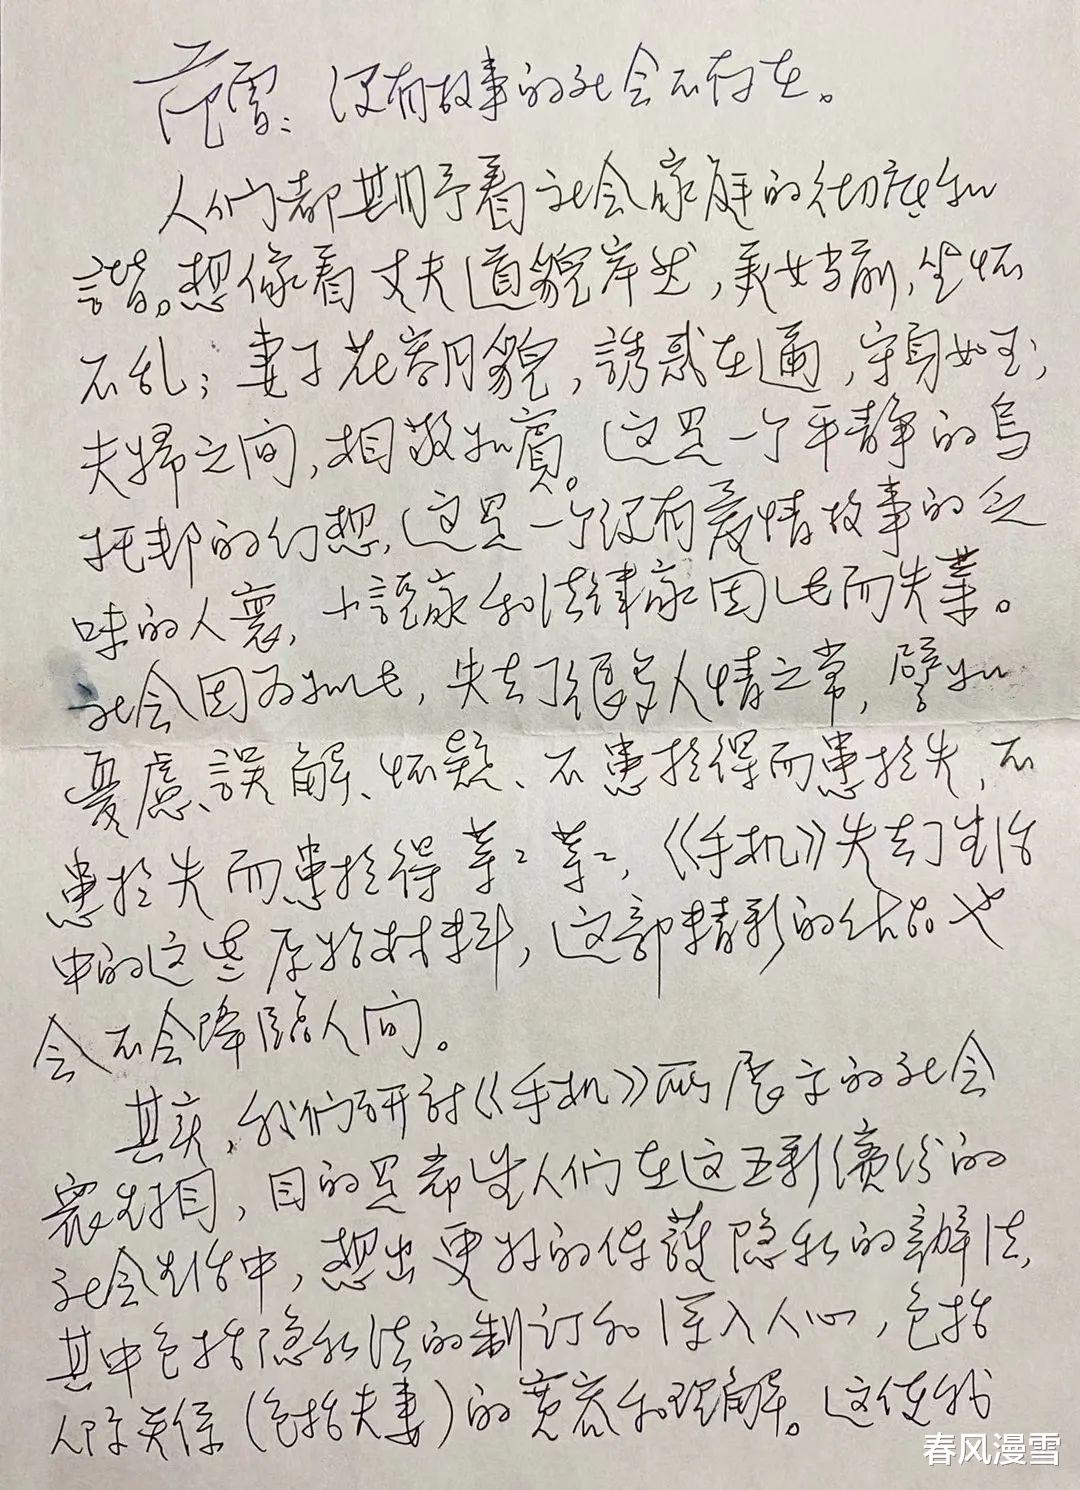 范雪：没有故事的社会不存在。
人们都期予着社会家庭的彻底和
諧。想像着丈夫道貌岸然，美女当前，坐怀
不乱；妻子花容月貌，誘惑在逼，守身如玉；
夫婦之间，相敬如賓。这是一个平静的烏
托邦的幻想，这是一个没有爱情故事的乏
味的人寰，小説家和法律家因此而失業。
社会因为如此，失去了很多人情之常，譬如
憂慮、誤解、怀疑、不患於得而患於失，不
患於失而患於得等等，《手机》失去了生活
中的这些原始材料，这部精彩的作品也
会不会降臨人间。
其实，我们研討《手机》所展示的社会
衆生相，目的是希望人们在这五彩缤纷的
社会生活中，想出更好的保護隐私的辦法，
其中包括隐私法的制订和深入人心，包括
人际关係（包括夫妻）的宽容和理解。这使我
春风漫雪